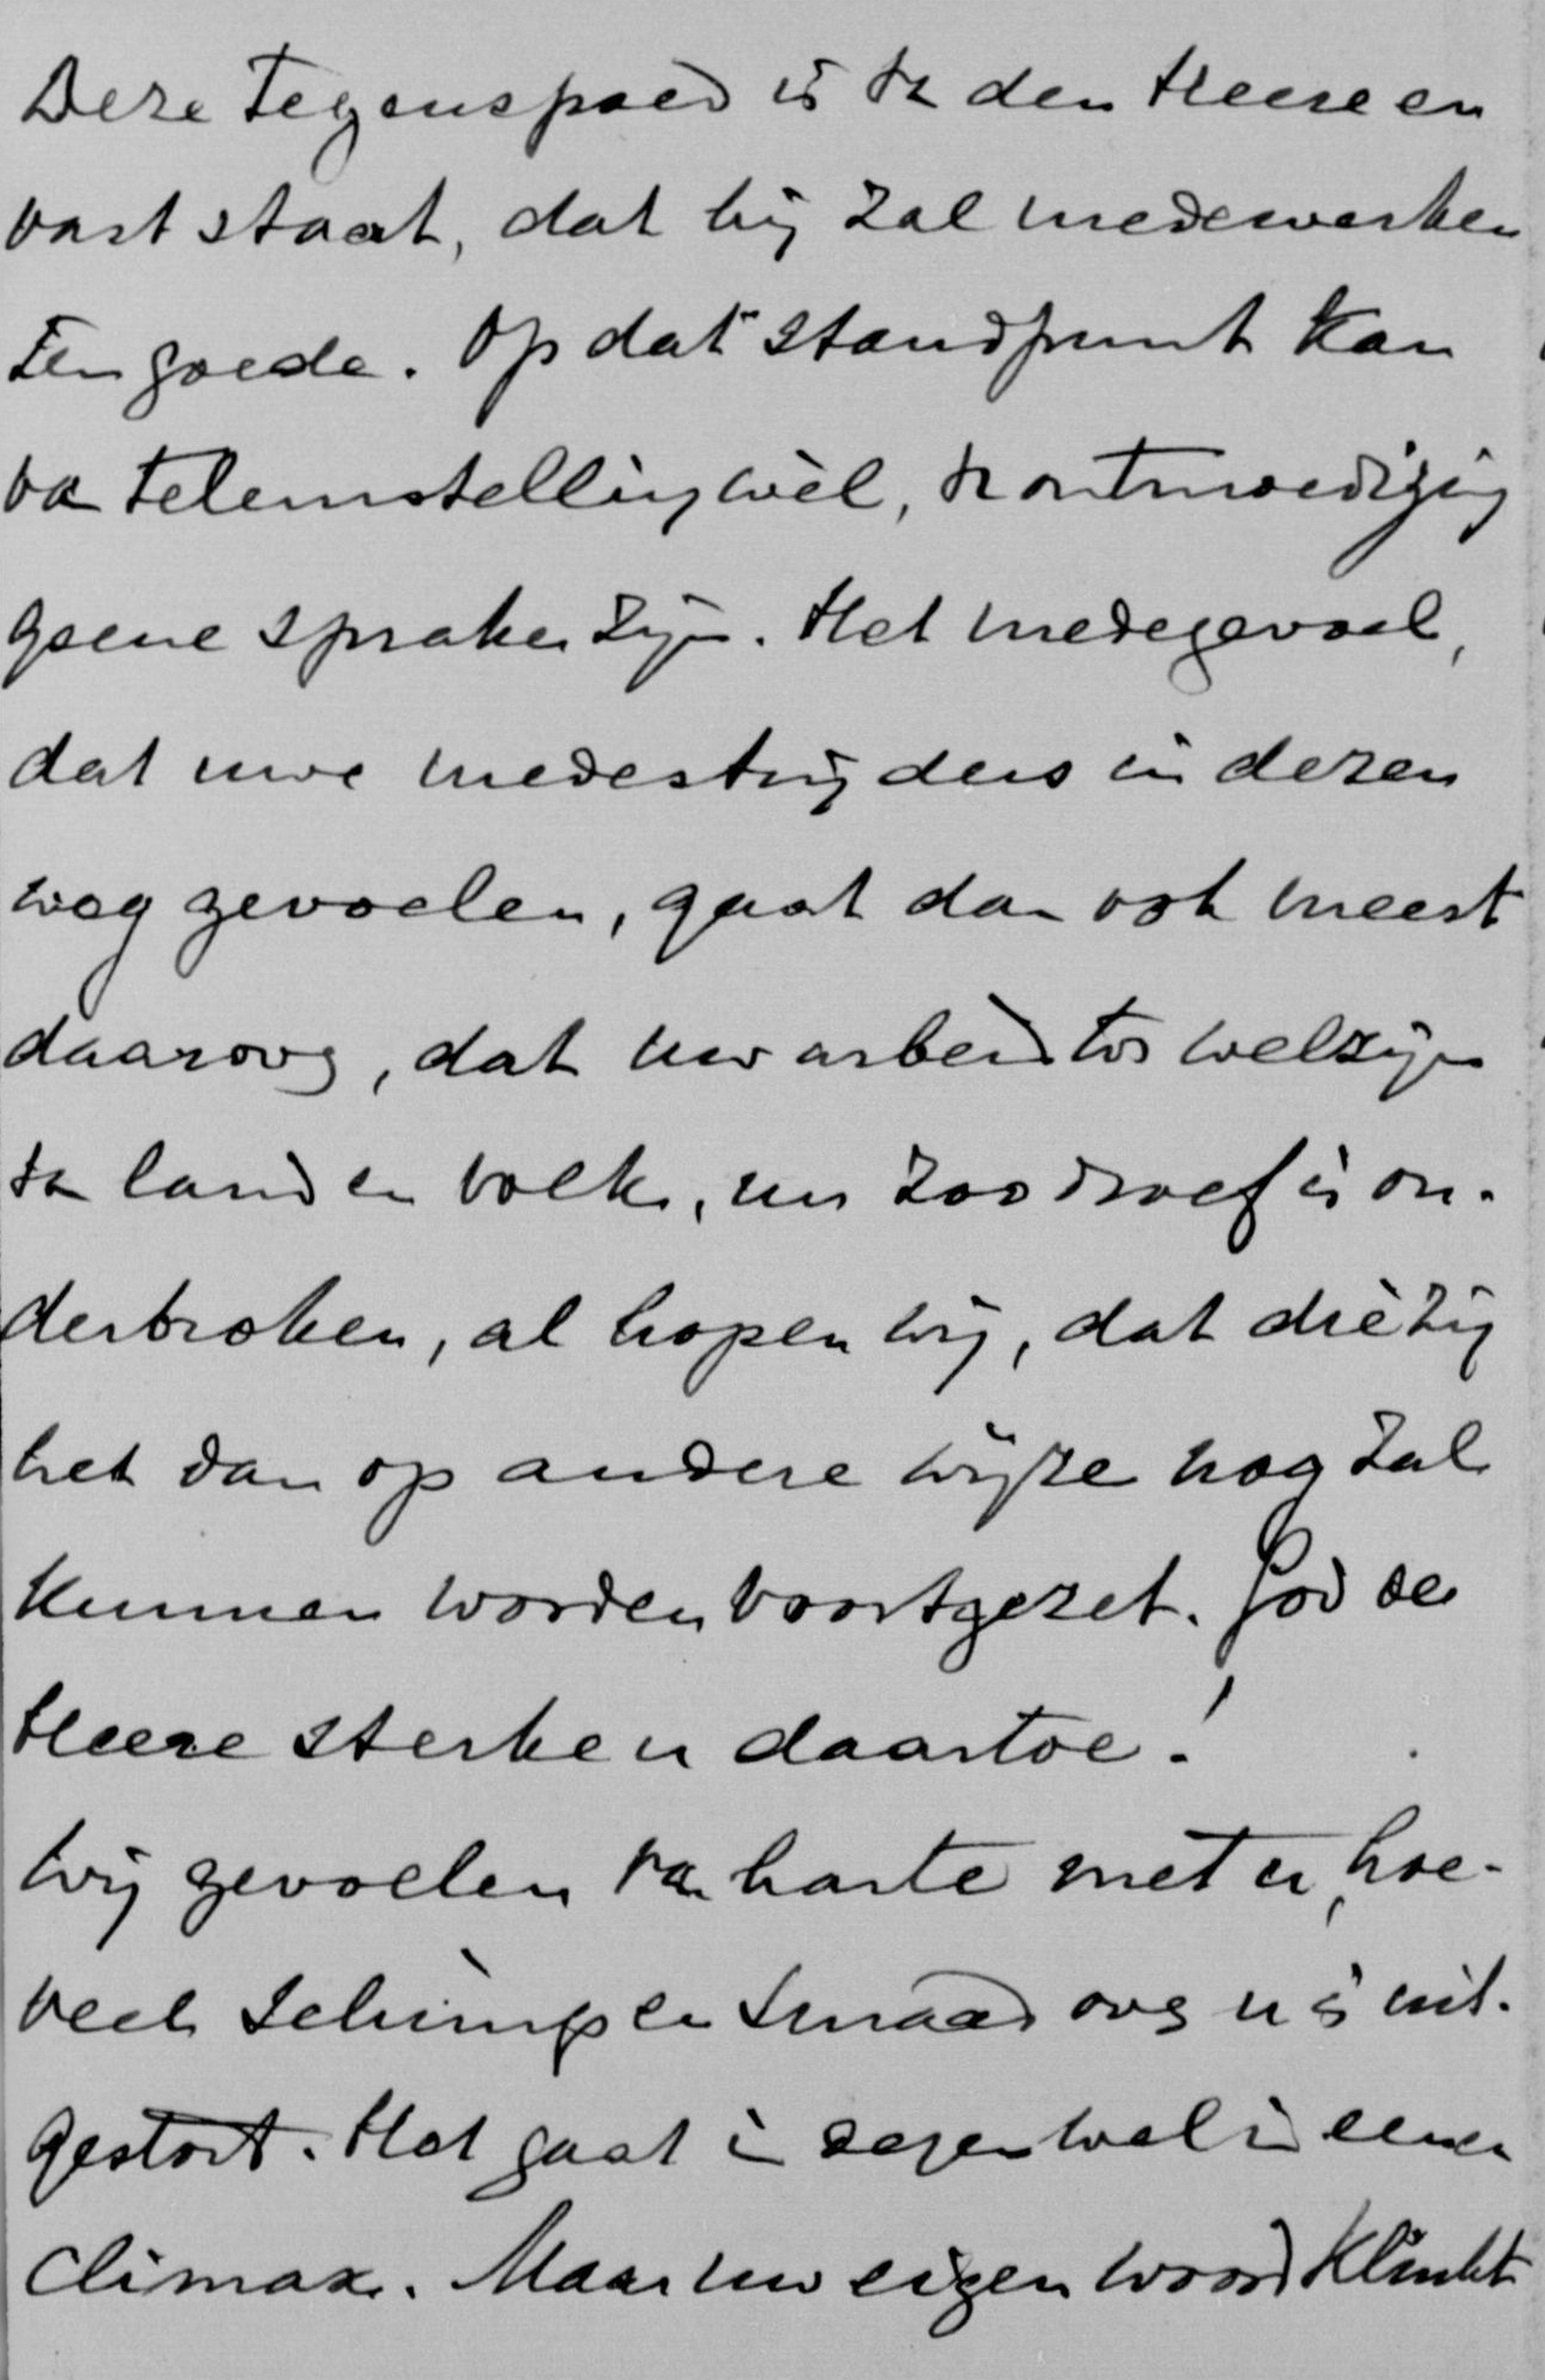 Deze tegenspoed is van den Heere en
vast staat, dat hij zal medewerken
ten goede. Op dat standpunt kan
van teleurstelling wèl, van ontmoediging
geene sprake zijn. Het medegevoel,
dat uwe medestrijders in dezen
nog gevoelen, gaat dan ook meest
daarover, dat uw arbeid tot welzijn
van land en volk, nu zoo droef is on-
derbroken, al hopen wij, dat die zij
het dan op andere wijze nog zal
kunnen worden voortgezet. God de
Heere sterke u daartoe!
Wij gevoelen van harte met u, hoe-
veel schimp en smaad over u is uit-
gestort. Het gaat in dezen wel in eenen
climax. Maar uw eigen woord klinkt